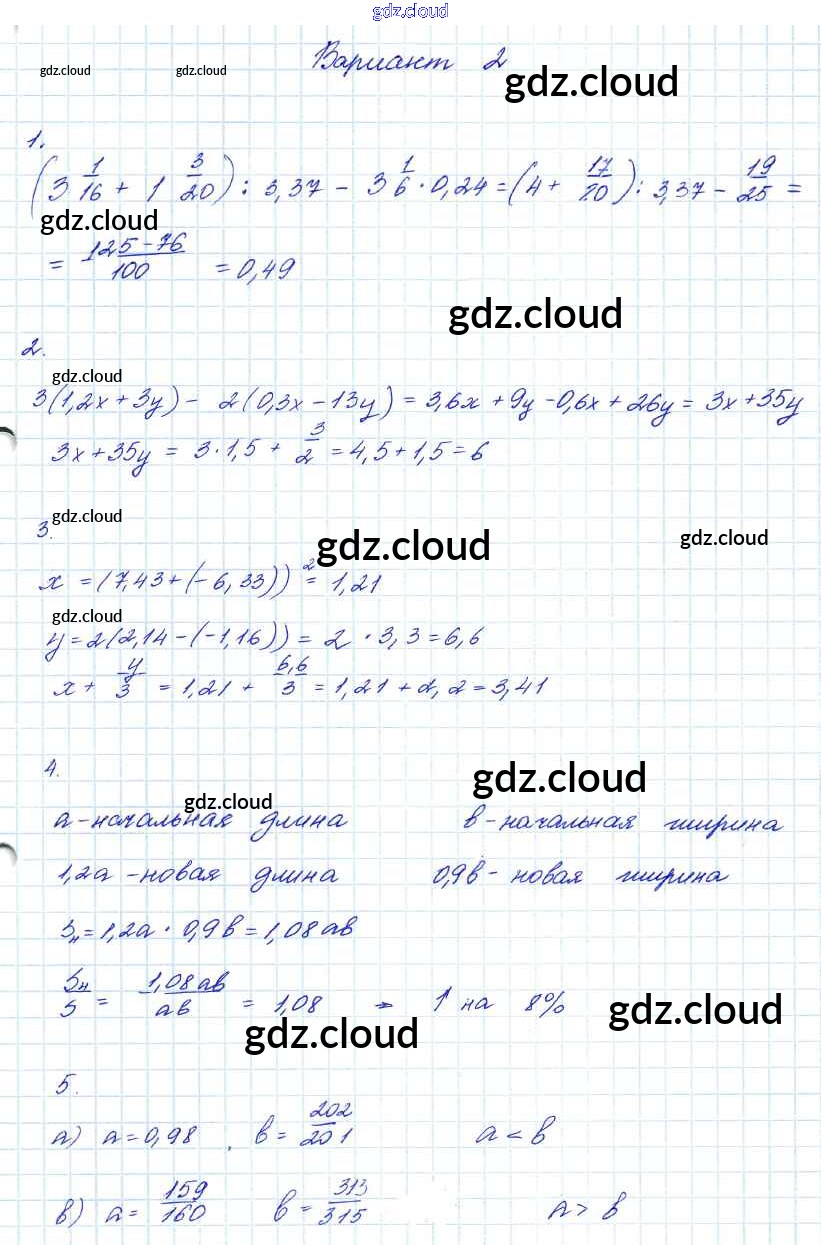 gdz.cloud
Вариант 2
gdz.cloud gdz.cloud gdz.cloud
1.
(3 1/16 + 1 3/20) : 3,37 - 3 1/6 · 0,24 = (4 + 17/80) : 3,37 - 19/25 =
gdz.cloud
= 125-76/100 = 0,49
gdz.cloud
2.
gdz.cloud
3(1,2x + 3y) - 2(0,3x - 13y) = 3,6x + 9y - 0,6x + 26y = 3x + 35y
3x + 35y = 3 · 1,5 + 3/2 = 4,5 + 1,5 = 6
gdz.cloud
3.
gdz.cloud gdz.cloud
x = (7,43 + (-6,33))² = 1,21
gdz.cloud
y = 2(2,14 - (-1,16)) = 2 · 3,3 = 6,6
x + y/3 = 1,21 + 6,6/3 = 1,21 + 2,2 = 3,41
4.
gdz.cloud
gdz.cloud
a - начальная длина в - начальная ширина
1,2a - новая длина 0,9в - новая ширина
Sн = 1,2a · 0,9в = 1,08ав
Sн/S = 1,08ав/ав = 1,08 → ↑ на 8%
gdz.cloud gdz.cloud
5.
а) a = 0,98, в = 202/201 a < в
в) a = 159/160 в = 313/315 a > в